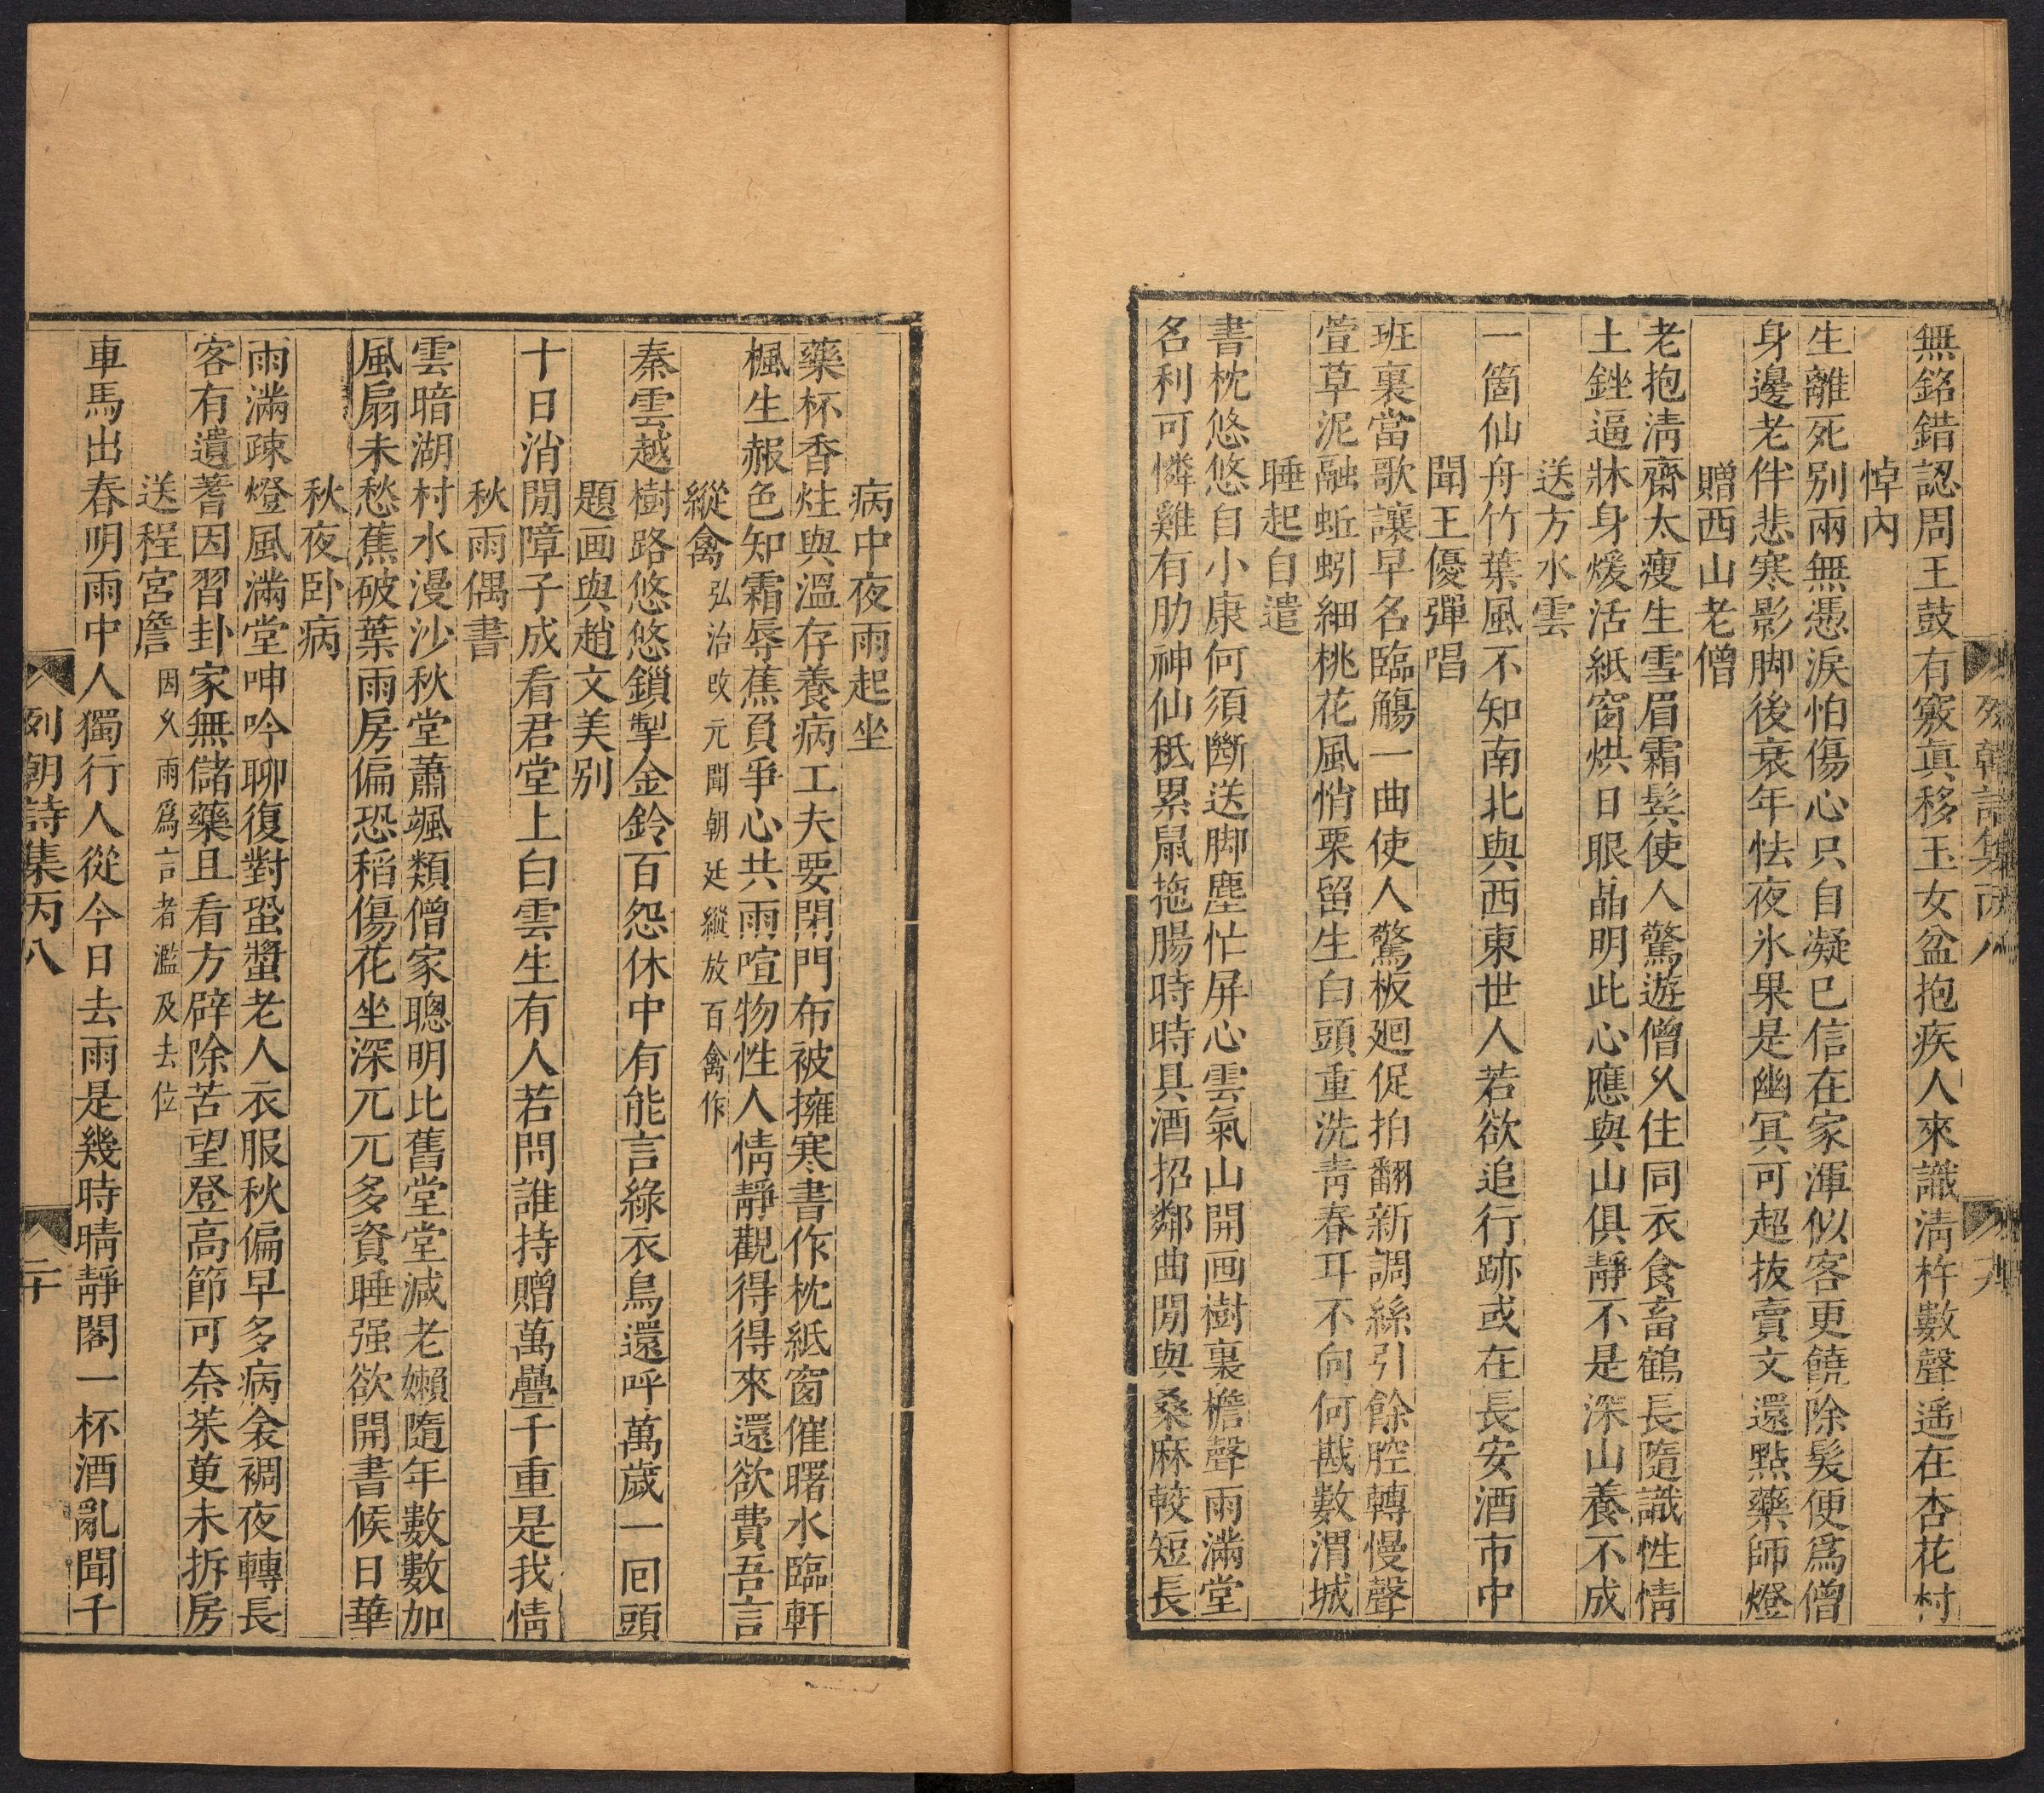 無銘錯認周王鼓有竅真移玉女盆抱疾人來識淸杵數聲遙在杏花村
悼內
生離死别兩無憑淚怕傷心只自凝已信在家渾似客更饒除髮便爲僧
身邊老伴悲寒影脚後衰年怯夜氷果是幽冥可超拔賣文還點藥師燈
贈西山老僧
老抱淸齋太瘦生雪眉霜鬂使人驚遊僧乆住同衣食畜鶴長隨識性情
土銼逼牀身煖活紙窗烘日眼晶明此心應與山俱靜不是深山養不成
送方水雲
一箇仙舟竹葉風不知南北與西東世人若欲追行跡或在長安酒市中
聞王優彈唱
班裏當歌讓早名臨觴一曲使人驚板廻促拍翻新調絲引餘腔轉慢聲
萱草泥融蚯蚓細桃花風悄栗留生白頭重洗靑春耳不向何戡數渭城
睡起自遣
書枕悠悠自小康何須斷送脚塵忙屏心雲氣山開画樹裏檐聲雨滿堂
名利可憐雞有肋神仙秪累鼠拖腸時時具酒招鄰曲閒與桑麻較短長
病中夜雨起坐
藥杯香炷與溫存養病工夫要閉門布被擁寒書作枕紙窗催曙水臨軒
楓生赧色知霜辱蕉負爭心共雨喧物性人情靜觀得得來還欲費吾言
縱禽弘治改元聞朝廷縱放百禽作
秦雲越樹路悠悠鎖掣金鈴百怨休中有能言綠衣鳥還呼萬歲一回頭
題画與趙文美别
十日消閒障子成看君堂上白雲生有人若問誰持贈萬疊千重是我情
秋雨偶書
雲暗湖村水漫沙秋堂蕭颯類僧家聰明比舊堂堂減老嬾隨年數數加
風扇未愁蕉破葉雨房偏恐稻傷花坐深兀兀多資睡强欲開書候日華
秋夜卧病
雨滿疎燈風滿堂呻吟聊復對蛩螿老人衣服秋偏早多病衾裯夜轉長
客有遺蓍因習卦家無儲藥且看方辟除苦望登高節可奈茱萸未拆房
送程宮詹因乆雨爲言者濫及去位
車馬出春明雨中人獨行人從今日去雨是幾時晴靜閣一杯酒亂聞千
列朝詩集丙八
二十